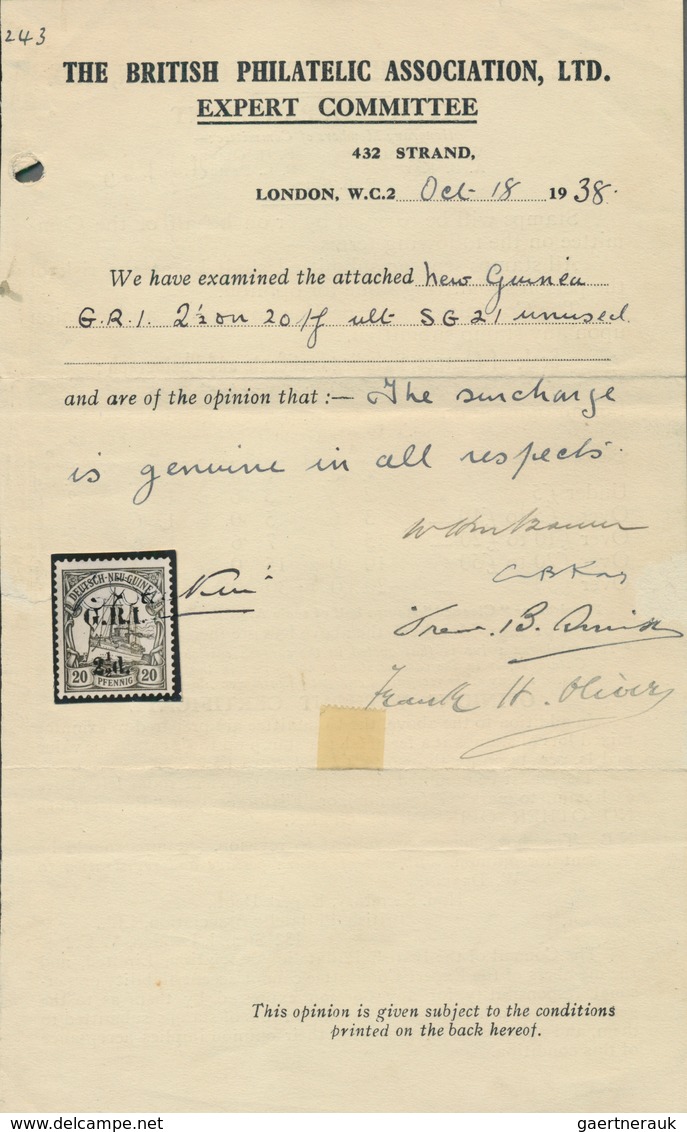 243
THE BRITISH PHILATELIC ASSOCIATION, LTD.
EXPERT COMMITTEE
432 STRAND,
LONDON, W.C.2 Oct 18 1938.
We have examined the attached New Guinea
G.R.I. 2½ on 20 pf ult SG 21 unused
and are of the opinion that :— The surcharge
is genuine in all respects.
DEUTSCH-NEU-GUINEA
G.R.I.
2½d.
20 PFENNIG 20
Frank H. Oliver
This opinion is given subject to the conditions
printed on the back hereof.
gaertnerauk